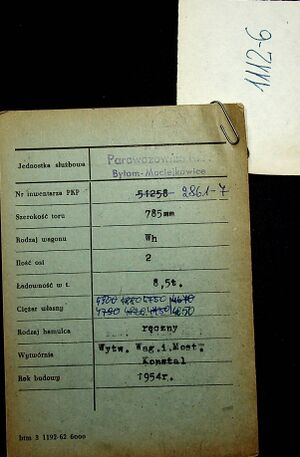 1112-6
Parowozownia
Bytom-Maciejkowice
Jednostka służbowa
Nr inwentarza PKP 51258 - 2861-7
Szerokość toru 785mm
Rodzaj wagonu Wh
Ilość osi 2
Ładowność w t. 8,5t.
4670
Ciężar własny
4850
Rodzaj hamulca ręczny
Wytwórnia Wytw. Wag.i.Most.
Konstal
Rok budowy 1954r.
btm 3 1192-62 6000